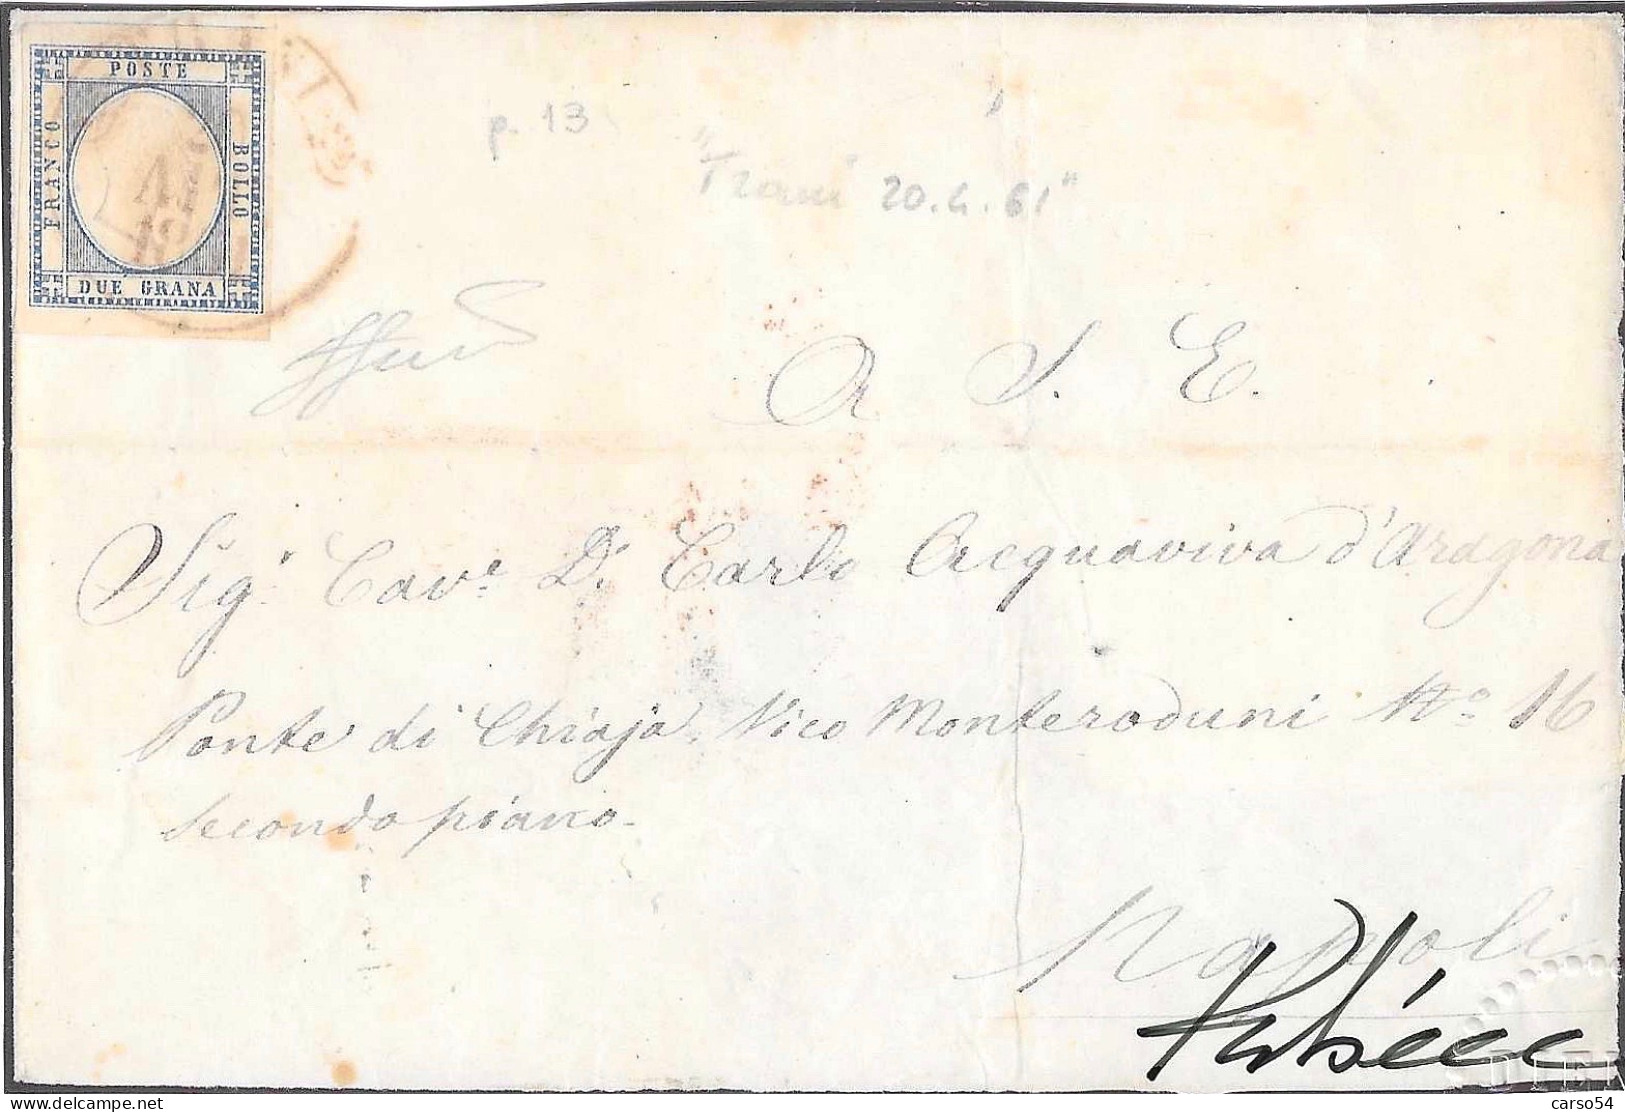 POSTE
FRANCO
BOLLO
DUE GRANA
p. 13
"Trani 20.4.61"
A S. E.
Sig.r Cav.e D. Carlo Acquaviva d'Aragona
Ponte di Chiaja, Vico Monteroduni No. 16
secondo piano
Napoli
DIE
carso54